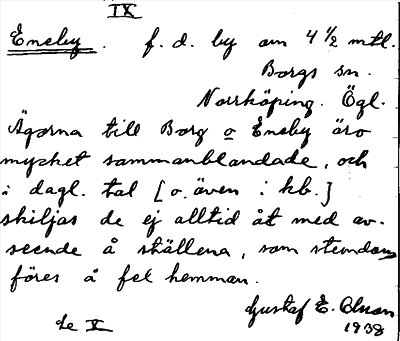 IX
Eneby. f. d. by om 4 1/2 mtl.
Borgs sn.
Norrköping. Ögl.
Ägorna till Borg o Eneby äro
mycket sammanblandade, och
i dagl. tal [o. även i kb.]
skiljas de ej alltid åt med av-
seende å ställena, som stundom
föres å fel hemman.
Gustaf E. Olsson
1938
Se V